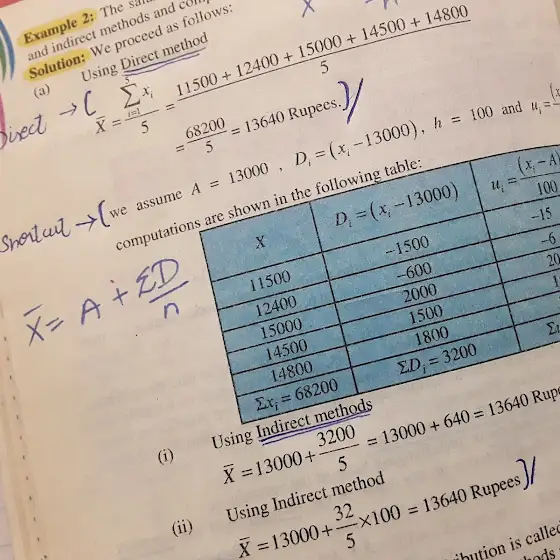 Example 2: The
and indirect methods and
Solution: We proceed as follows:
(a) Using Direct method
Direct → ( X̄ = \frac{\sum_{i=1}^{5} x_i}{5} = \frac{11500 + 12400 + 15000 + 14500 + 14800}{5}
= \frac{68200}{5} = 13640 Rupees.
Shortcut → ( we assume A = 13000 , D_i = (x_i − 13000), h = 100 and u_i =
computations are shown in the following table:
X D_i = (x_i − 13000) u_i = \frac{(x_i − A)}{100}
11500 −1500 −15
12400 −600 −6
15000 2000 20
14500 1500
14800 1800
Σx_i = 68200 ΣD_i = 3200
X̄ = A + \frac{ΣD}{n}
(i) Using Indirect methods
X̄ = 13000 + \frac{3200}{5} = 13000 + 640 = 13640
(ii) Using Indirect method
X̄ = 13000 + \frac{32}{5} × 100 = 13640 Rupees
is called